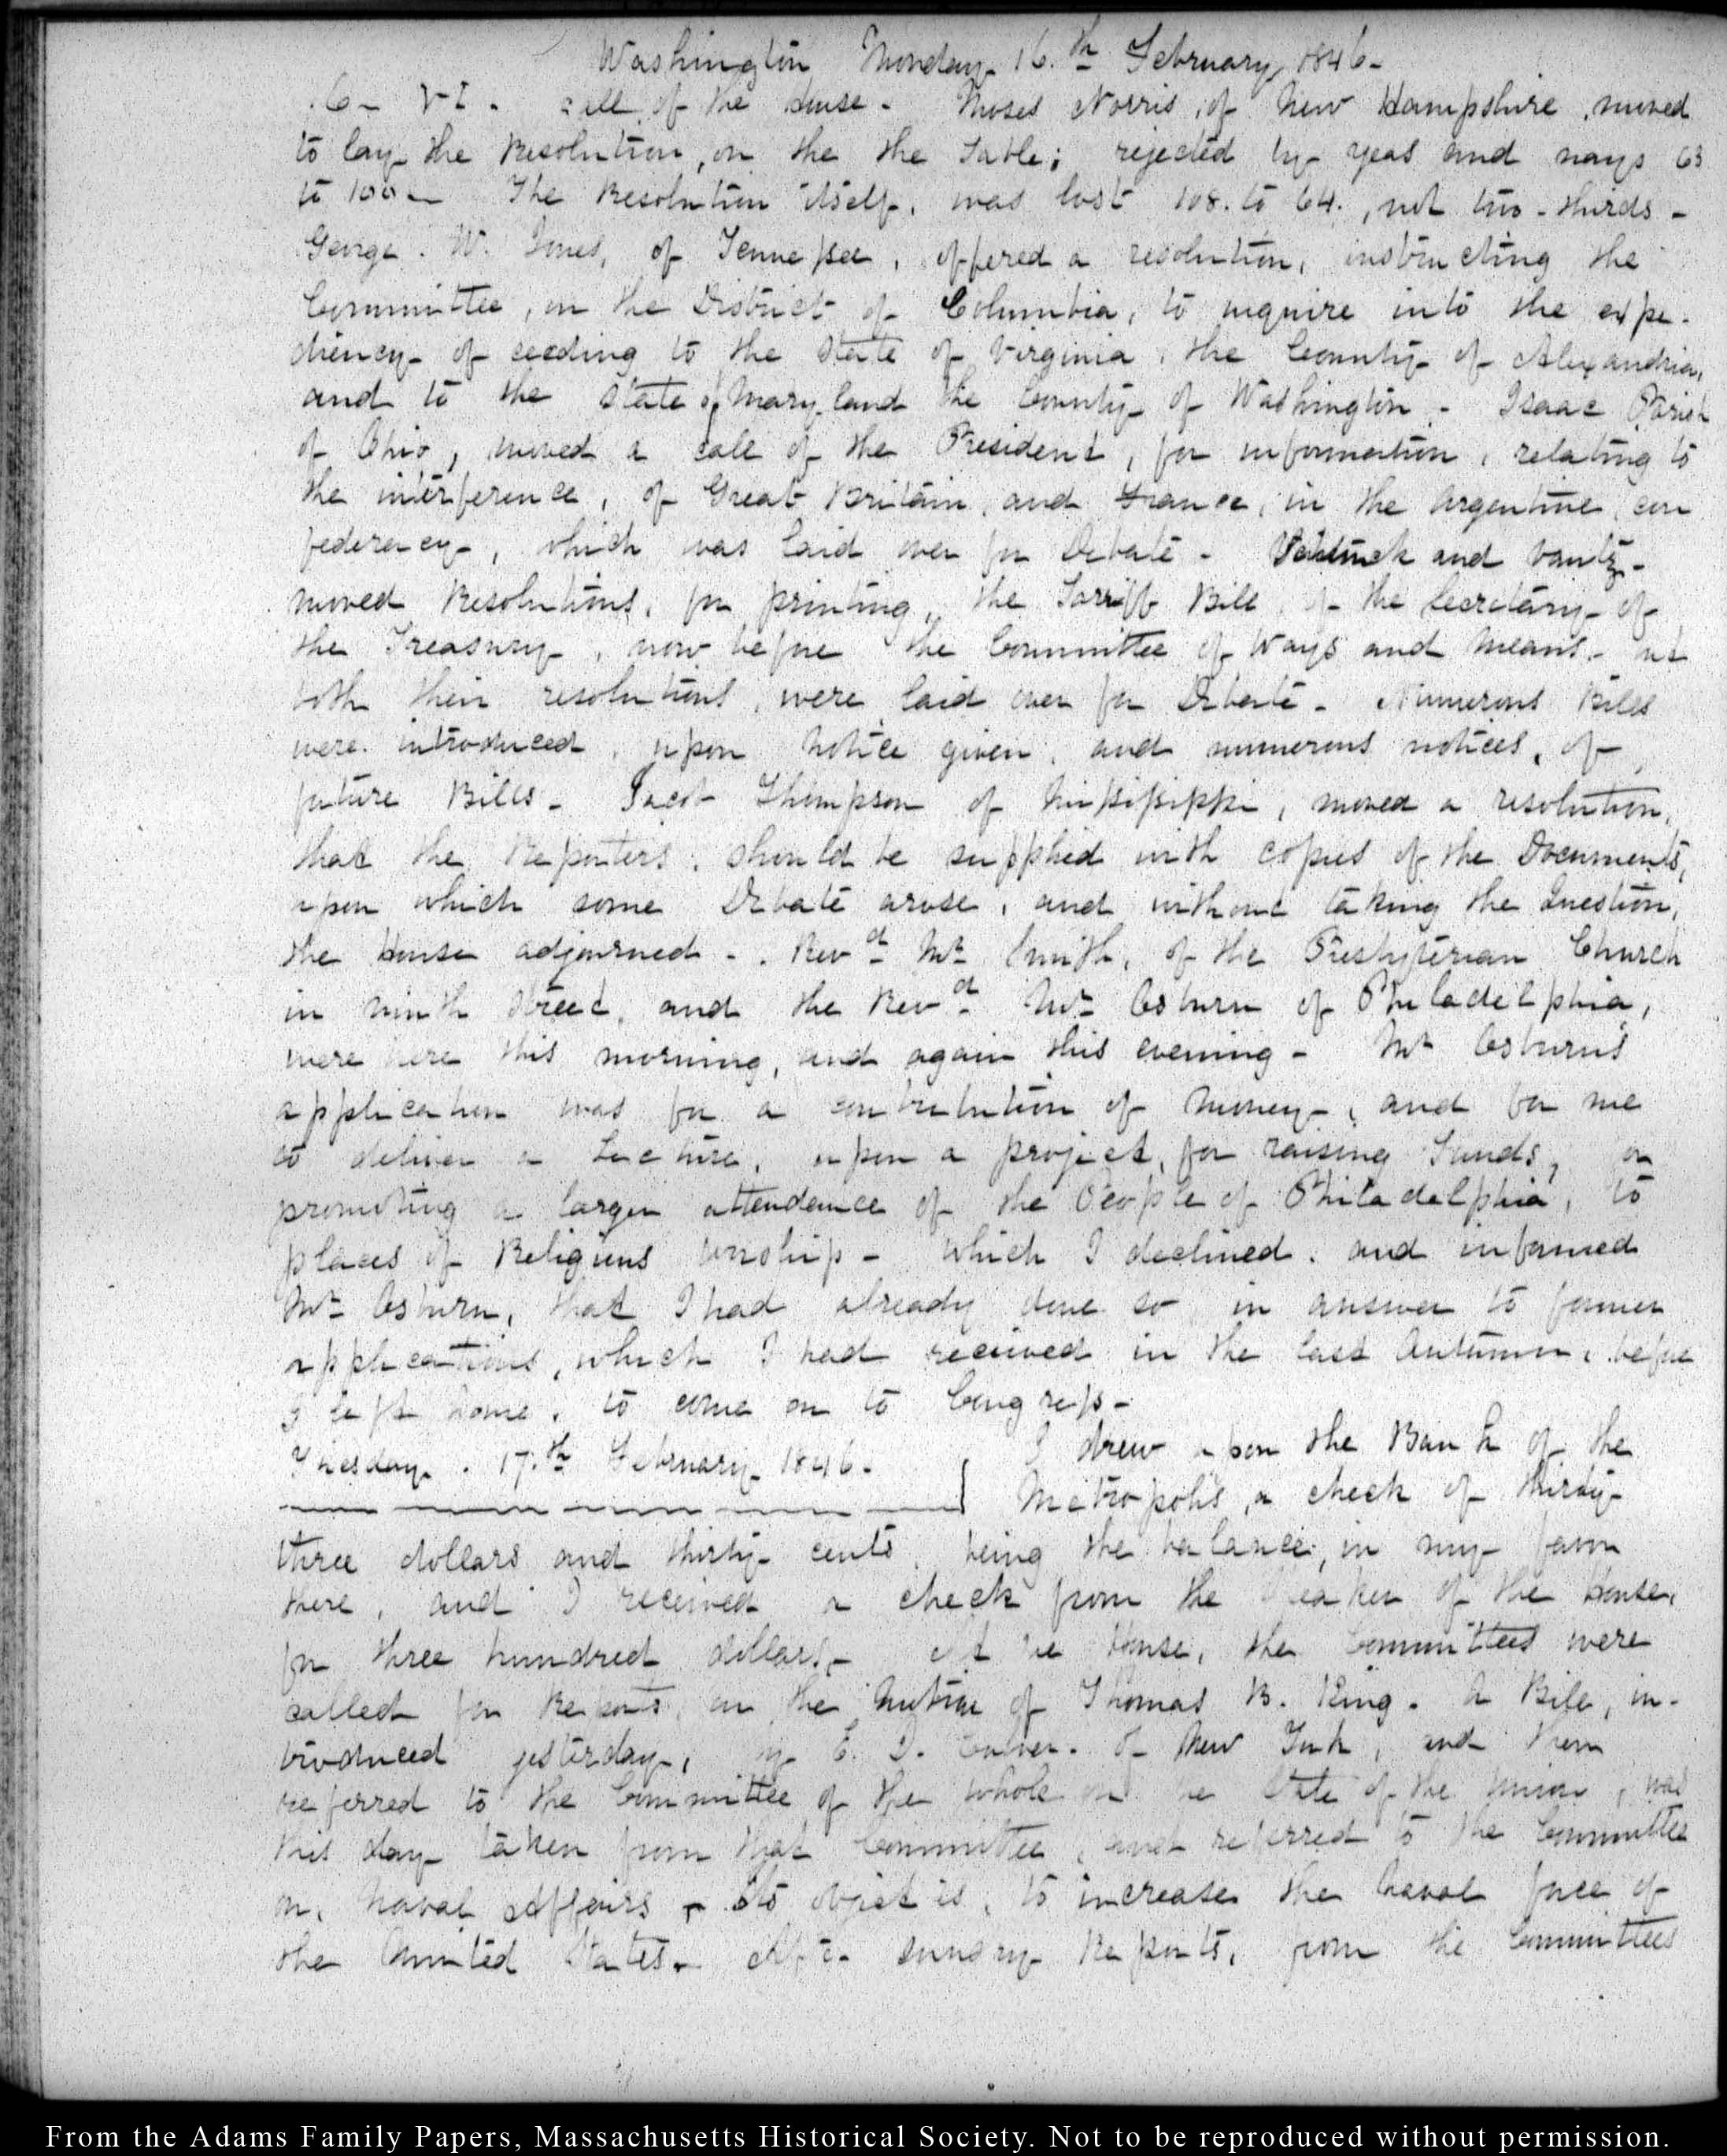 Washington Monday 16.th February 1846-
.6- VI. call of the House- Moses Norris, of New Hampshire, moved
to lay the Resolution, on the the Table; rejected by yeas and nays 63
to 100- The Resolution itself, was lost 108. to 64., not two-thirds-
George. W. Jones, of Tennessee, offered a resolution, instructing the
Committee, on the District of Columbia, to inquire into the expe-
diency of ceeding to the State of Virginia, the County of Alexandria,
and to the State of Maryland the County of Washington- Isaac Parish
of Ohio, moved a call of the President, for information, relating to
the interference, of Great Britain, and France, in the Argentine, con
federacy, which was laid over for Debate- and Vant
moved Resolutions, for printing, the Tariff Bill, of the Secretary of
the Treasury, now before the Committee of Ways and Means- but
both their resolutions, were laid over for Debate- Numerous Bills
were introduced, upon notice given, and numerous notices, of
future Bills- Jacob Thompson of Mississippi, moved a resolution,
that the Reporters, should be supplied with copies of the Documents,
upon which some Debate arose, and without taking the Question,
the House adjourned-. Revd. Mr Smith, of the Presbyterian Church
in ninth Street, and the Revd. Mr Osburn of Philadelphia,
were here this morning, and again this evening- Mr Osburn's
application was for a contribution of money, and for me
to deliver a Lecture, upon a project, for raising Funds, or
promoting a larger attendance of the People of Philadelphia, to
places of Religious worship- which I declined. and informed
Mr Osburn, that I had already done so, in answer to former
applications, which I had received in the last Autumn, before
I left home, to come on to Congress-
Tuesday. 17.th February 1846.
I drew upon the Bank of the
Metropolis, a check of thirty
three dollars and thirty cents, being the balance, in my favor
there, and I received a check from the Speaker of the House,
for three hundred dollars- At the House, the Committees were
called for Reports, on the motion of Thomas B. King. A Bill, in-
troduced yesterday, by E. D. Culver. of New York, and then
referred to the Committee of the whole on the State of the Union, was
this day taken from that Committee, and referred to the Committee
on, Naval Affairs- Its object is, to increase the Naval force of
the United States. After sundry Reports, from the Committees
From the Adams Family Papers, Massachusetts Historical Society. Not to be reproduced without permission.